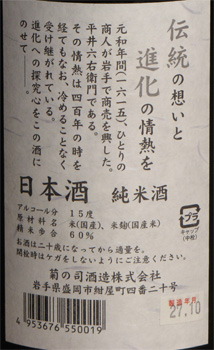 伝統の想いと
進化の情熱を
元和年間(一六一五)、ひとりの
商人が岩手で商売を興した。
平井六右衛門である。
その情熱は四百年の時を
経てもなお、冷めることなく
受け継がれている。
進化への探究心をこの酒に
のせて。
日本酒 純米酒
アルコール分 15度
原材料名 米(国産)、米麹(国産米)
精米歩合 60%
お酒は二十歳になってから適量を。
開栓時はケガをしないようにご注意ください。
プラ
キャップ
(中栓)
菊の司酒造株式会社
岩手県盛岡市紺屋町四番二十号
製造年月
27.10
4 953676 550019